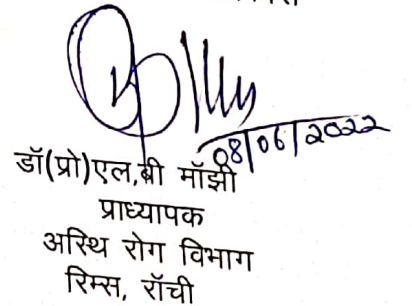 08/06/2022
डॉ(प्रो)एल,बी मॉझी
प्राध्यापक
अस्थि रोग विभाग
रिम्स, रॉची